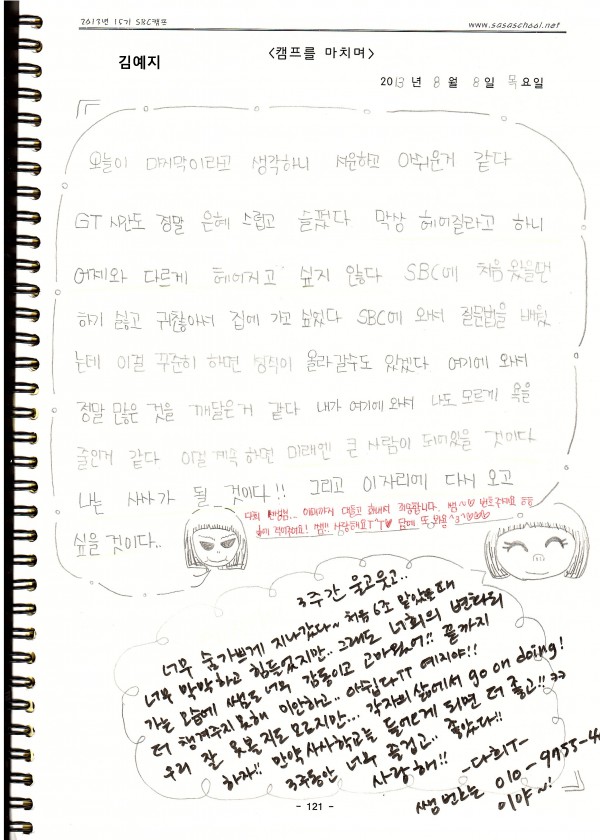 2013년 15기 SBC캠프
www.sasaschool.net
김예지
<캠프를 마치며>
2013 년 8 월 8 일 목요일
오늘이 마지막이라고 생각하니 서운하고 아쉬운게 같다
GT 시간도 정말 은혜 스럽고 슬펐다 막상 헤어질라고 하니
어제와 다르게 헤어지고 싶지 않다 SBC에 처음 왔을땐
하기 싫고 귀찮아서 집에 가고 싶었다 SBC에 와서 질문법을 배웠
는데 이걸 꾸준히 하면 성적이 올라갈수도 있겠다 여기에 와서
정말 많은 것을 깨달은거 같다 내가 여기에 와서 나도 모르게 욕을
줄인거 같다 이걸 계속 하면 미래엔 큰 사람이 되어있을 것이다
나는 사사가 될 것이다!! 그리고 이자리에 다시 오고
싶을 것이다..
다희 쌤... 대들고 죄송합니다. 쌤~♡ 번호주세요
적어주세요! 쌤!! 사랑해요 담에 또 봐용 ^3^
3주간 울고웃고..
너무 숨가쁘게 지나갔다~ 처음 6조 맡았을때
너무 막막하고 힘들었지만.. 그래도 너희의 변화되
가는 모습에 쌤도 너무 감동이고 고마웠어!! 끝까지
더 챙겨주지못해 미안하고.. 아쉽다ㅠ 예지야!!
우리 잘 못볼지도 모르지만... 각자의 삶에서 go on doing!
하자!! 만약 사사학교는 들어오게 되면 더 좋고!! ㅋㅋ
3주동안 너무 즐겁고.. 좋았다!!
사랑해!! -다희T-
쌤 번호는 010-9755-4
이야~!
- 121 -